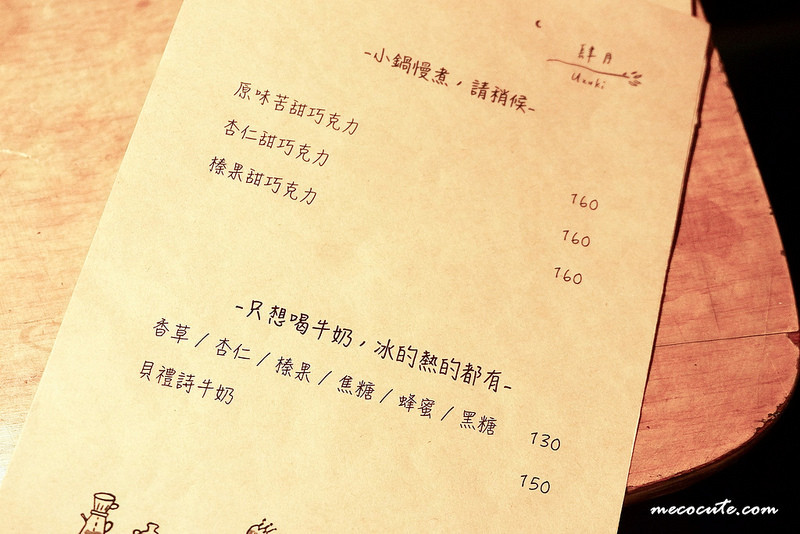 肆月
Uzuki
-小鍋慢煮，請稍候-
原味苦甜巧克力 160
杏仁甜巧克力 160
榛果甜巧克力 160
-只想喝牛奶，冰的熱的都有-
香草 / 杏仁 / 榛果 / 焦糖 / 蜂蜜 / 黑糖 130
貝禮詩牛奶 150
mecocute.com